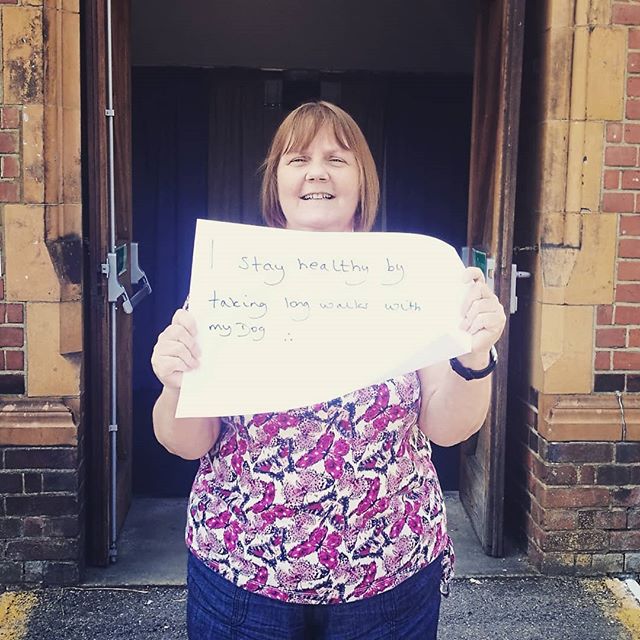 I stay healthy by
taking long walks with
my Dog